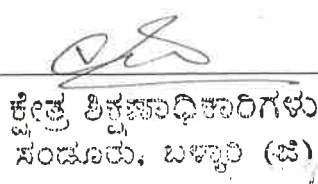 ಕ್ಷೇತ್ರ ಶಿಕ್ಷಣಾಧಿಕಾರಿಗಳು
ಸಂಡೂರು, ಬಳ್ಳಾರಿ (ಜಿ)